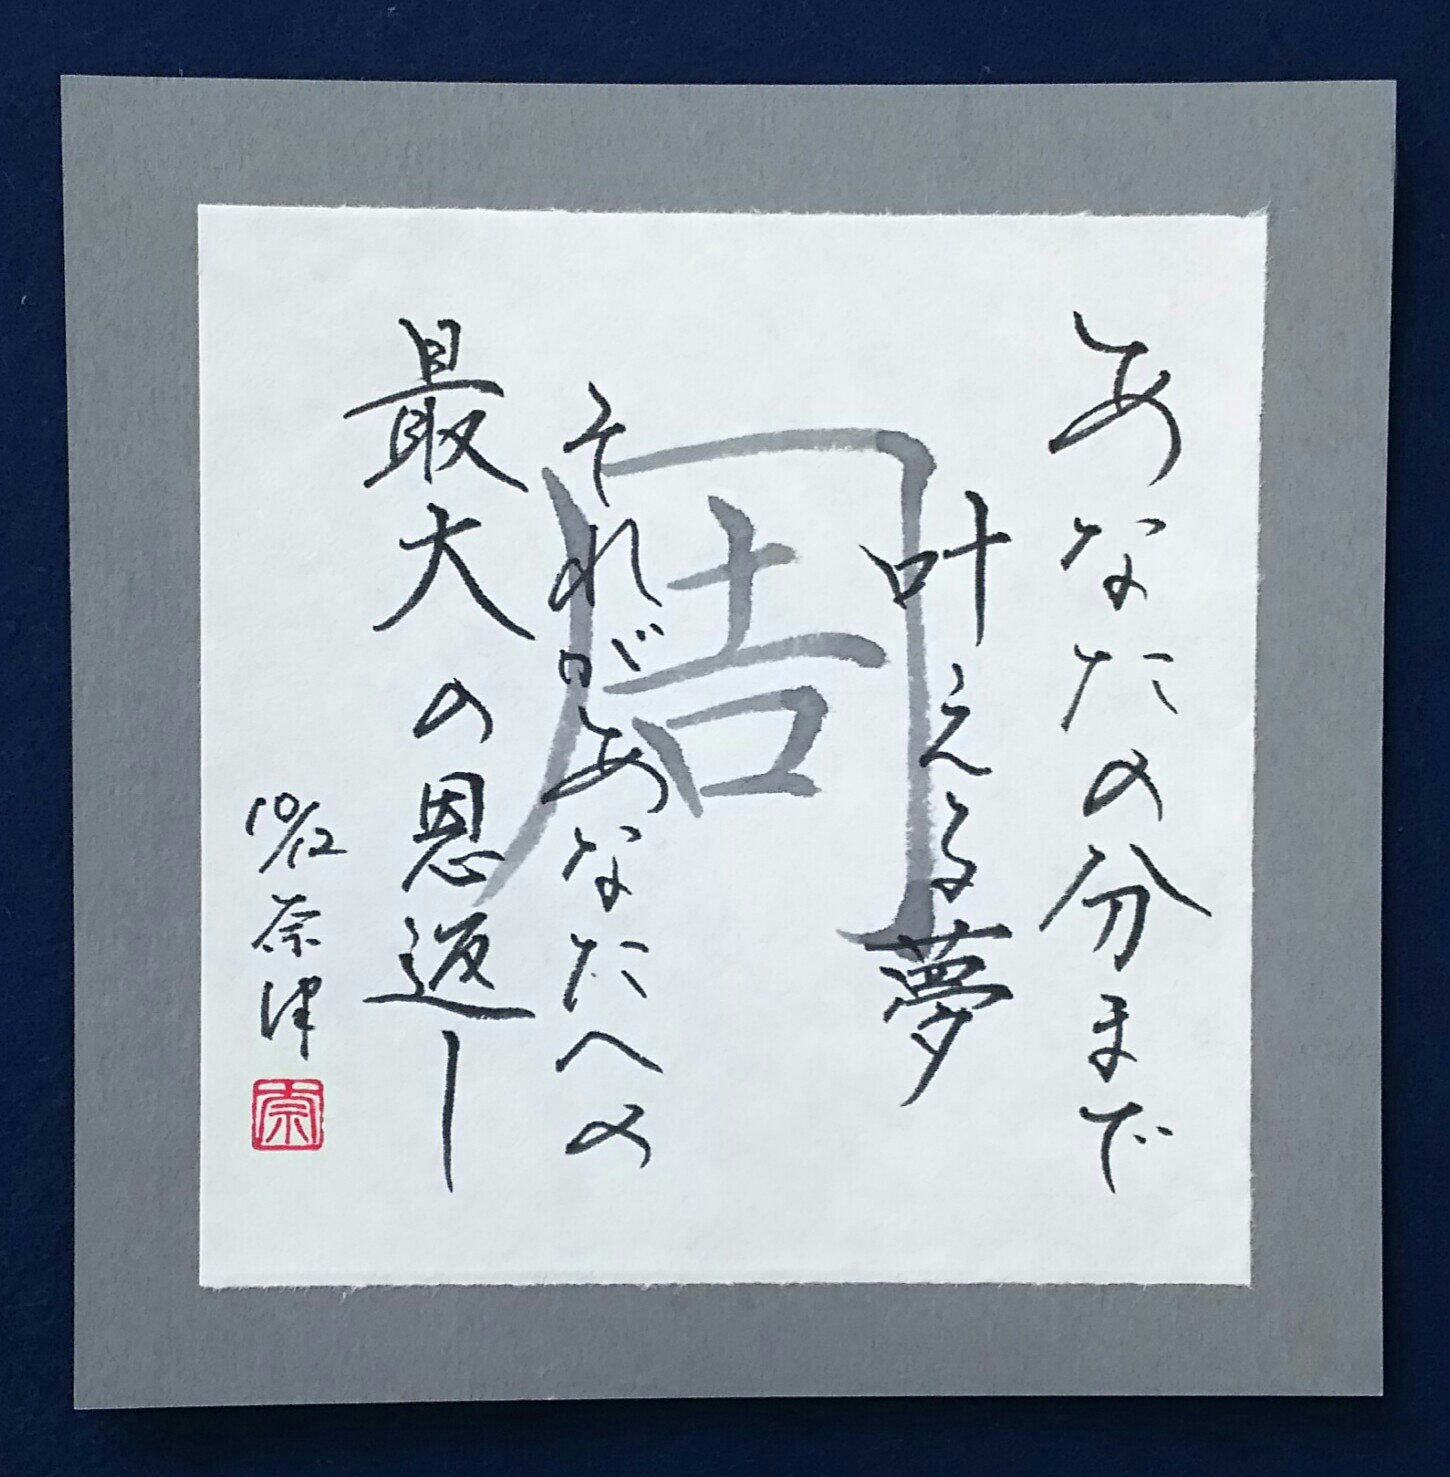 あなたの分まで
叶える夢
それがあなたへの
最大の恩返し
周
10/12 奈津
奈